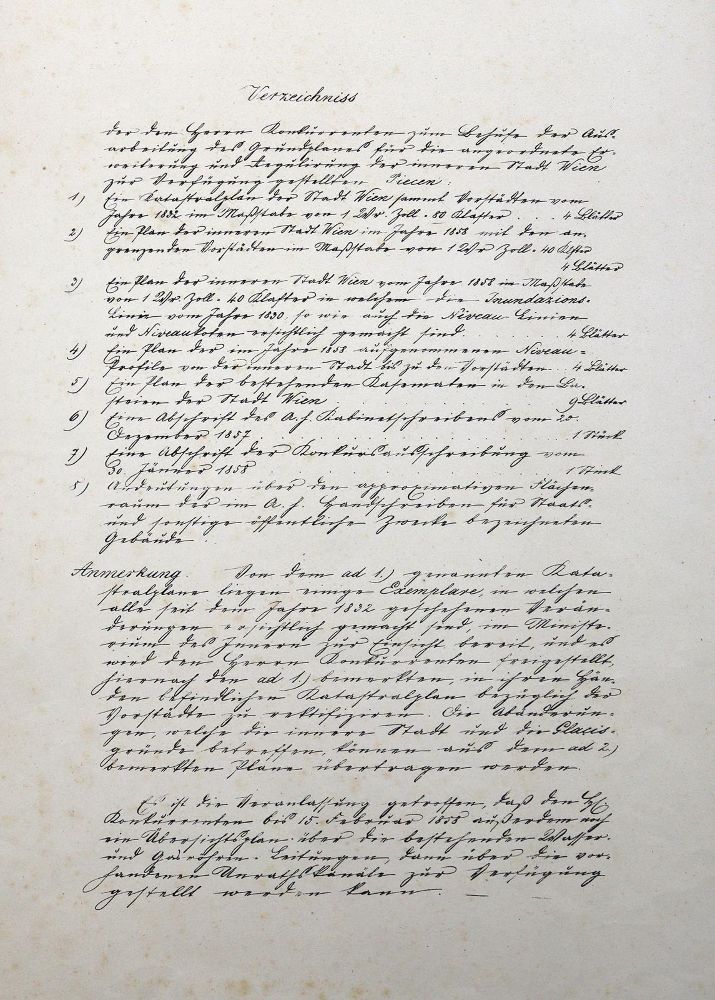 Verzeichniss
der den Herrn Konkurrenten zum Behufe der Aus-
arbeitung des Grundplanes für die angeordnete Er-
weiterung und Regulirung der inneren Stadt Wien
zur Verfügung gestellten Piecen:
1) Ein Katastralplan der Stadt Wien sammt Vorstädten vom
Jahre 1832 im Maßstabe von 1 Wr. Zoll = 80 Klafter . . . 4 Blätter
2) Ein Plan der inneren Stadt Wien im Jahre 1858 mit den an-
grenzenden Vorstädten im Maßstabe von 1 Wr Zoll = 40 Klftr
4 Blätter
3) Ein Plan der inneren Stadt Wien vom Jahre 1858 im Maßstabe
von 1 Wr. Zoll = 40 Klafter in welchem die Inundazions-
Linie vom Jahre 1830, so wie auch die Niveau Linien
und Niveaukoten ersichtlich gemacht sind . . . 4 Blätter
4) Ein Plan der im Jahre 1858 aufgenommenen Niveau-
Profile von der inneren Stadt bis zu den Vorstädten . . 4 Blätter
5) Ein Plan der bestehenden Kasematen in den Ba-
steien der Stadt Wien . . . 9 Blätter
6) Eine Abschrift des A. h. Kabinetschreibens vom 20.
Dezember 1857 . . . 1 Stück
7) Eine Abschrift der Konkursausschreibung vom
30. Jänner 1858 . . . 1 Stück
8) Andeutungen über den approximativen Flächen-
raum der im A. h. Handschreiben für Staats-
und sonstige öffentliche Zwecke bezeichneten
Gebäude.
Anmerkung. Von dem ad 1.) genannten Kata-
stralplane liegen einige Exemplare, in welchen
alle seit dem Jahre 1832 geschehenen Verän-
derungen ersichtlich gemacht sind, im Ministe-
rium des Innern zur Einsicht bereit, und es
wird den Herrn Konkurrenten freigestellt,
hiernach den ad 1.) bemerkten, in ihren Hän-
den befindlichen Katastralplan bezüglich der
Vorstädte zu rektifiziren. Die Abänderun-
gen, welche die innere Stadt und die Glacis-
gründe betreffen, können aus dem ad 2.)
bemerkten Plane übertragen werden.
Es ist die Veranlassung getroffen, daß den H.
Konkurrenten bis 15. Februar 1858 außerdem noch
ein Übersichtsplan über die bestehenden Wasser-
und Gasröhren-Leitungen, dann über die vor-
handenen Unrathskanäle zur Verfügung
gestellt werden kann.